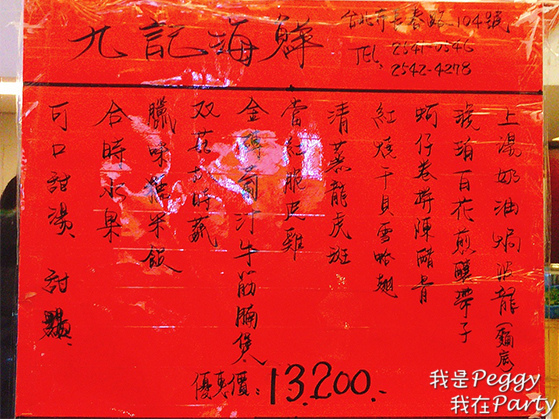 九記海鮮
台北市長春路104號
TEL: 2541-0546
2542-4278
上湯奶油焗波龍(麵底)
琥珀百花煎釀帶子
蚵仔卷拼陳醋骨
紅燒干貝雪蛤翅
清蒸龍虎斑
當紅脆皮雞
金磚荀汁牛筋腩煲
双菇扒時蔬
臘味糯米飯
合時水果
可口甜湯 甜點
優惠價:13,200.-
我是Peggy
我在Party